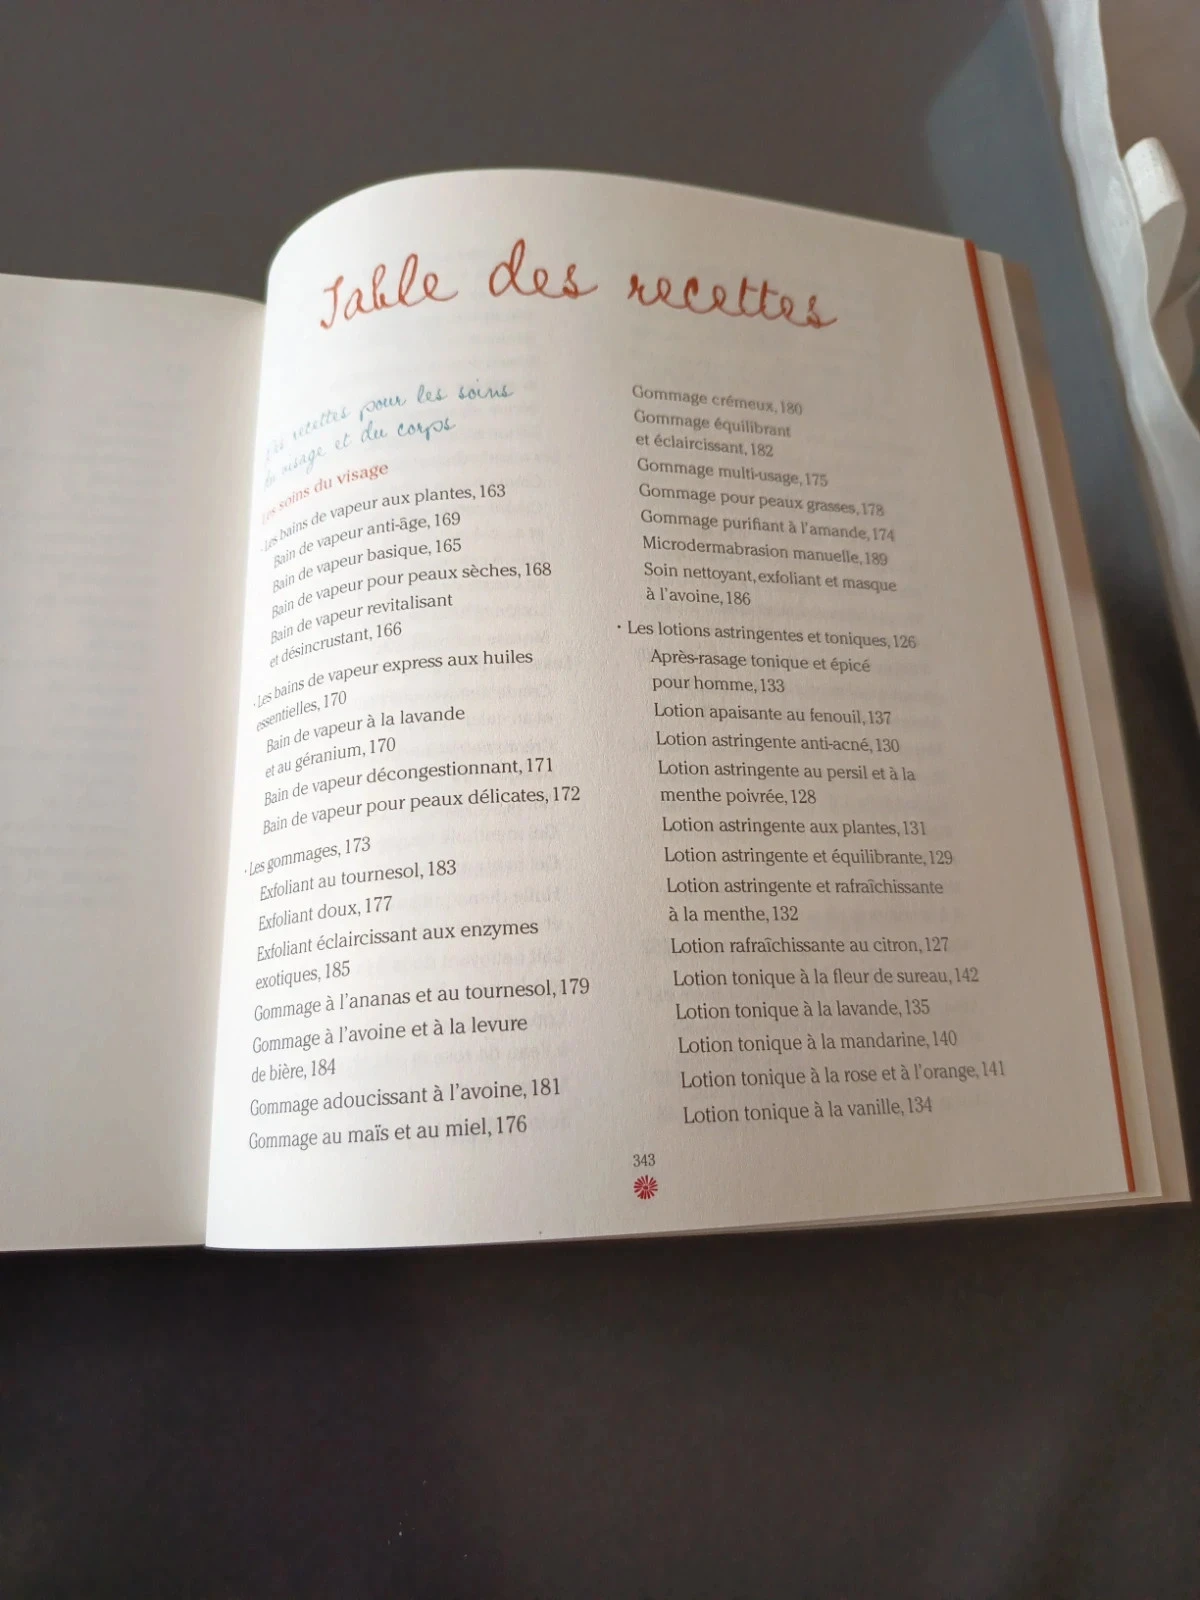 Table des recettes
Les recettes pour les soins
du visage et du corps
Les soins du visage
· Les bains de vapeur aux plantes, 163
Bain de vapeur anti-âge, 169
Bain de vapeur basique, 165
Bain de vapeur pour peaux sèches, 168
Bain de vapeur revitalisant
et désincrustant, 166
· Les bains de vapeur express aux huiles
essentielles, 170
Bain de vapeur à la lavande
et au géranium, 170
Bain de vapeur décongestionnant, 171
Bain de vapeur pour peaux délicates, 172
· Les gommages, 173
Exfoliant au tournesol, 183
Exfoliant doux, 177
Exfoliant éclaircissant aux enzymes
exotiques, 185
Gommage à l'ananas et au tournesol, 179
Gommage à l'avoine et à la levure
de bière, 184
Gommage adoucissant à l'avoine, 181
Gommage au maïs et au miel, 176
Gommage crémeux, 180
Gommage équilibrant
et éclaircissant, 182
Gommage multi-usage, 175
Gommage pour peaux grasses, 178
Gommage purifiant à l'amande, 174
Microdermabrasion manuelle, 189
Soin nettoyant, exfoliant et masque
à l'avoine, 186
· Les lotions astringentes et toniques, 126
Après-rasage tonique et épicé
pour homme, 133
Lotion apaisante au fenouil, 137
Lotion astringente anti-acné, 130
Lotion astringente au persil et à la
menthe poivrée, 128
Lotion astringente aux plantes, 131
Lotion astringente et équilibrante, 129
Lotion astringente et rafraîchissante
à la menthe, 132
Lotion rafraîchissante au citron, 127
Lotion tonique à la fleur de sureau, 142
Lotion tonique à la lavande, 135
Lotion tonique à la mandarine, 140
Lotion tonique à la rose et à l'orange, 141
Lotion tonique à la vanille, 134
343